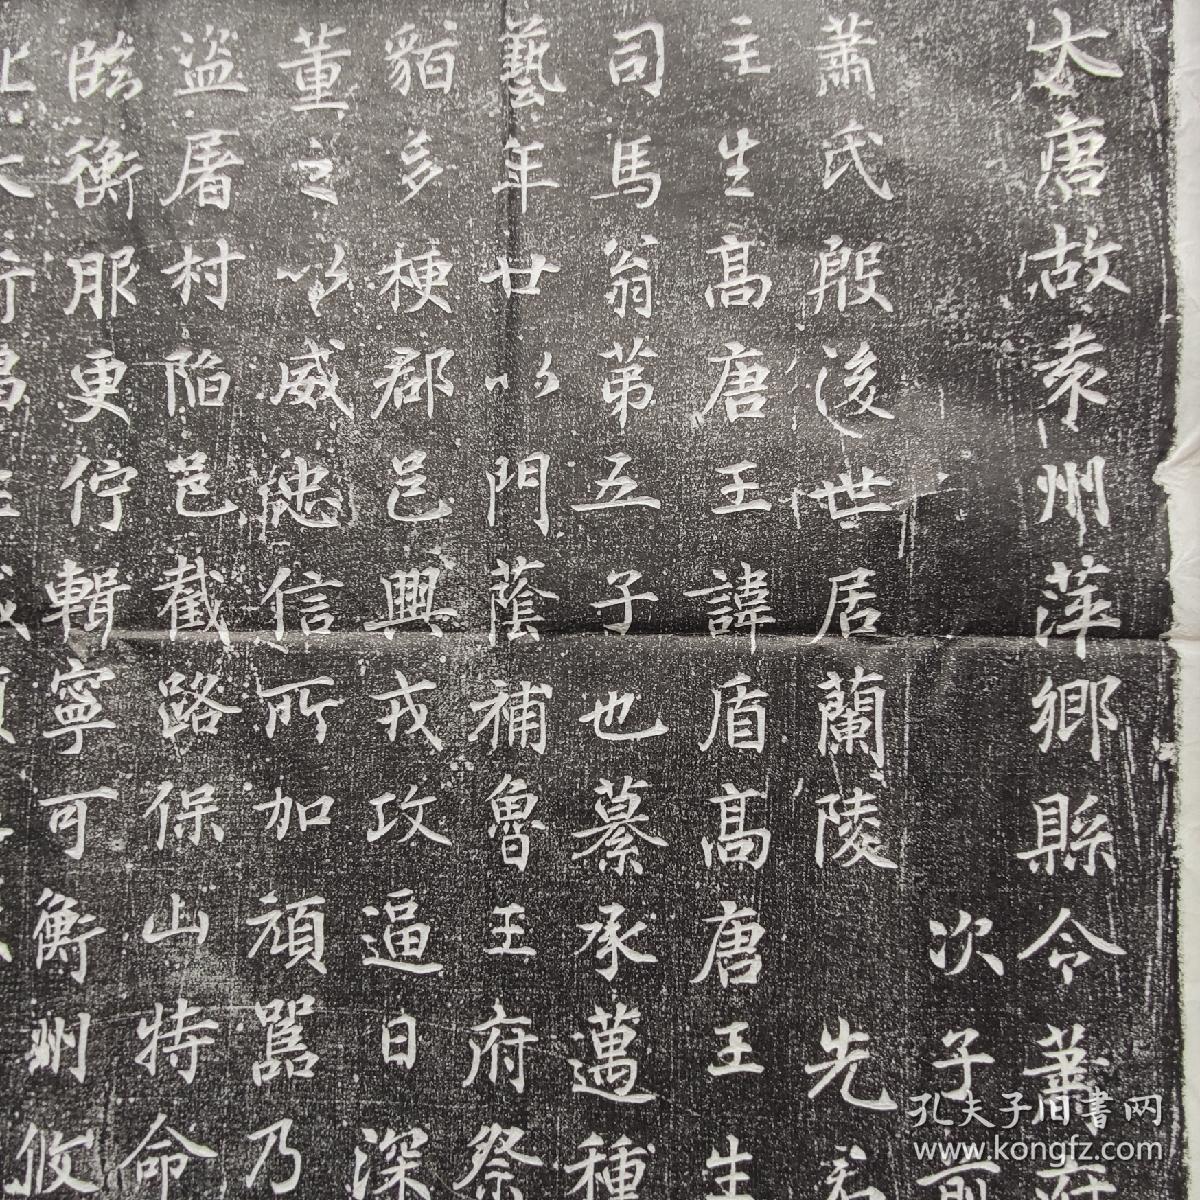 大唐故袁州萍鄉縣令蕭府
次子前
蕭氏殷後世居蘭陵 先君
王生高唐王諱盾高唐王生
司馬翁第五子也纂承邁種
藝年廿以門蔭補魯王府祭
貊多梗郡邑興戎攻逼日深
董之以威德信所加頑嚚乃
盜屠村陷邑截路保山特命
臨衡服更佇輯寧可衡州攸
孔夫子旧书网
www.kongfz.com